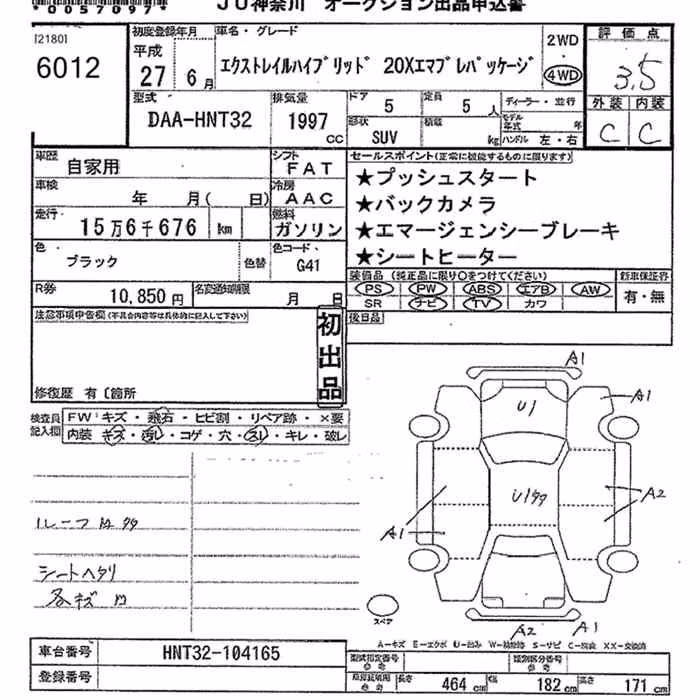 *0057097*
JU神奈川 オークション出品申込書
[2180]
6012
初度登録年月
平成
27 6月
車名・グレード
エクストレイルハイブリッド 20Xエマブレパッケージ
2WD
4WD
評価点
3.5
外装 内装
C C
型式
DAA-HNT32
排気量
1997 cc
ドア
5
定員
5人
ディーラー・並行
形状
SUV
積載
kg
モデル年式
年
ハンドル 左・右
車歴
自家用
シフト
FAT
車検
年 月( 日)
冷房
AAC
走行
15万6千676 km
燃料
ガソリン
色
ブラック
色替
色コード
G41
R券
10,850円
名変通知期限
月 日
セールスポイント(正常に機能するものに限ります)
★プッシュスタート
★バックカメラ
★エマージェンシーブレーキ
★シートヒーター
装備品(純正品に限り○をつけてください)
新車保証書
PS PW ABS エアB AW
SR ナビ TV カワ
有・無
注意事項申告欄(不具合内容等は具体的に記入して下さい)
初出品
後日品
修復歴 有〔箇所
検査員記入欄
FW:キズ・飛石・ヒビ割・リペア跡・×要
内装 キズ・汚レ・コゲ・穴・スレ・キレ・破レ
シートヘタリ
各キズ凹
A1
A1
U1
U1
A2
A1
A2
A1
スペア
A-キズ E-エクボ U-凹み W-補修跡 S-サビ C-腐食 XX-交換済
車台番号
HNT32-104165
登録番号
型式指定番号
参考
類別区分番号
参考
長さ
464 cm
幅
182 cm
高さ
171 cm